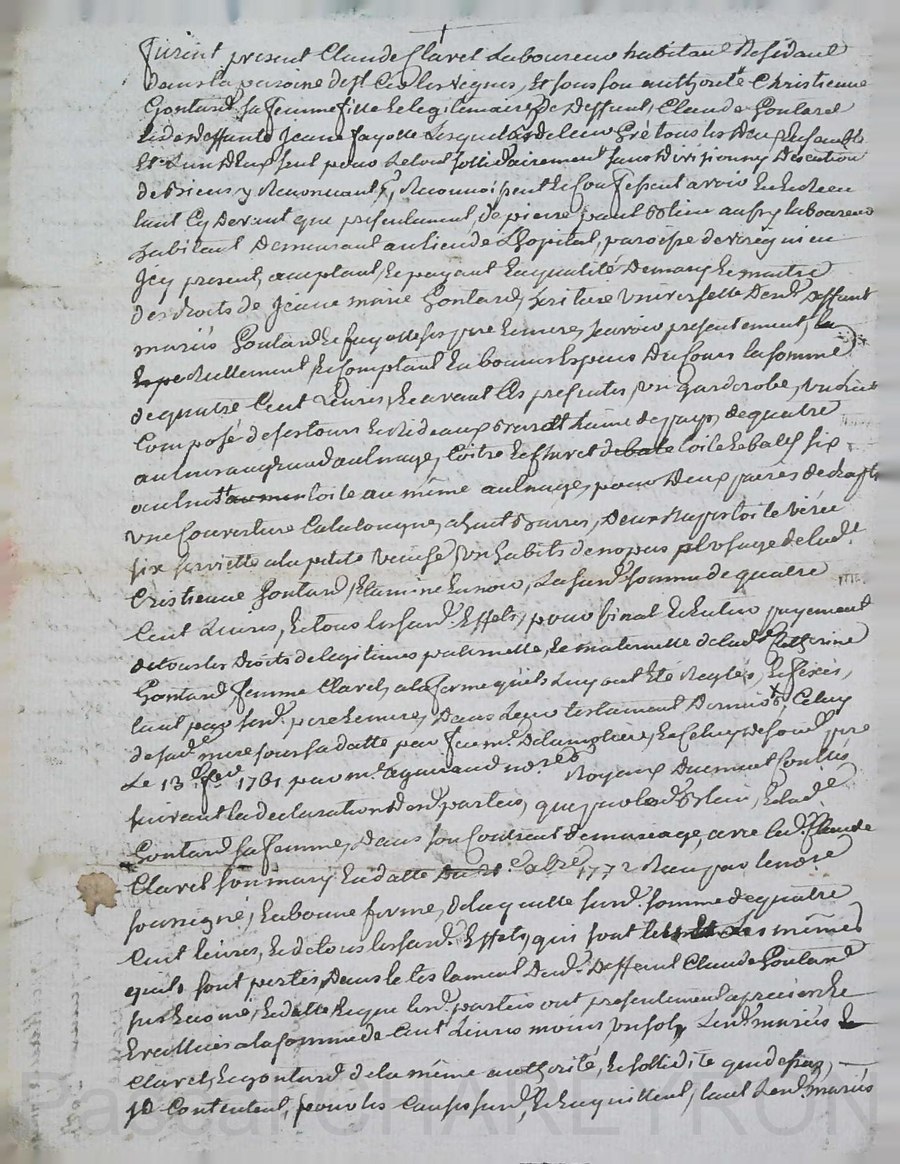 furent present Claude Claret Laboureur habitant Residant
dans la paroisse de St Cirles vignes, Et sous son authorité Christienne
Gontard sa femme fille Et legitimaire de Deffunt Claude Gontard
Et de Deffunte Jeane fayolle Lesquels de leur Gré tous les Deux Ensemble
Et L'un D'Eux seul pour Le tout sollidairement sans Division ny Discution
de Biens y Renonceant, Reconnoissent Et Confessent avoir Eu Et Receu
tant Cy Devant que presentement de pierre paul laboureur
habitant Demeurant au lieu de L'hopital, paroisse de
Icy present, acceptant, Et payant En qualité De mary Et maitre
des droits de Jeane marie Gontard, heritiere Universelle Desd. Deffunt
mariés Gontard Et fayolle ses pere Et mere, Sçavoir presentement, la
Reellement Et Comptant En bonnes Especes Du Cours La somme
de quatre Cent Livres, Et avant Ces presentes, Un Garderobe, Un Lit
Composé de ses tours Et Rideaux laine de pays de quatre
aulnes grand aulnage, Coitre Et toile Et balle six
aulnes toile au même aulnage, pour Deux paires de draps
une Couverture Catalougne, a huit Barres, Deux Nappes toile
six serviette a la petite Venise, Un habits de nopces plus sage de lad.
Cristienne Gontard, Etamine En noir, La susd. somme de quatre
Cent Livres, Et tous les susd. Effets, pour final Et Entier payement
de tous les Droits de legitimes paternelle, Et maternelle de lad. Catherine
Gontard femme Claret, a la forme qu'ils Luy ont Eté Reglés, Et fixés,
tant par sesd. pere Et mere, Dans Leur testament Celuy
de sad. mere sous sa datte par feu me. Delamolere, Et Celuy de sond. pere
Le 13e. fevr. 1761 par me. nore. Royaux Duement Controllés
suivant la declaration Desd. parties, que par led. Et lad.
Gontard sa femme, Dans son Contract de mariage, avec led. Claude
Claret son mary En datte Du 8bre 1772 Recu par le nore
soussigné, En bonne forme, de laquelle susd. somme de quatre
Cent livres, Et de tous les susd. Effets, qui sont Les mêmes
qu'ils sont portés, Dans le testament Dud. Deffunt Claude Gontard
sus Enoncé, Et datté Et que lesd. parties ont presentement apretiés Et
Evallués a la somme de Cent Livres moins un sol, Lesd. mariés
Claret, Et Gontard de la même authorité, Et sollidité que dessus,
se Contentent, pour les Causes susd., Et En quittent, tant Lesd. mariés
Pascal CHAREYRON